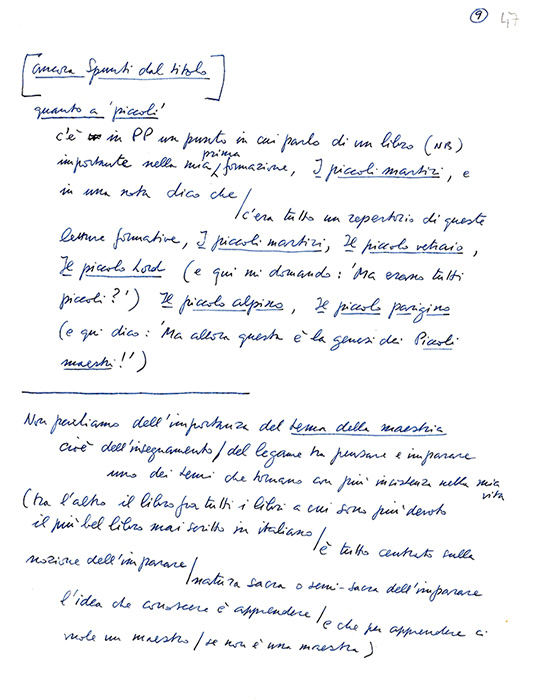 9 47
[ancora Spunti dal titolo]
quanto a 'piccoli'
c'è in PP un punto in cui parlo di un libro (NB)
importante nella mia prima formazione, I piccoli martiri, e
in una nota dico che / c'era tutto un repertorio di queste
letture formative, I piccoli martiri, Il piccolo vetraio,
Il piccolo Lord (e qui mi domando: 'Ma erano tutti
piccoli?') Il piccolo alpino, Il piccolo parigino
(e qui dico: 'Ma allora questa è la genesi dei Piccoli
maestri!')
Non parliamo dell'importanza del tema della maestria
cioè dell'insegnamento / del legame tra pensare e imparare
uno dei temi che tornano con più insistenza nella mia
vita
(tra l'altro il libro fra tutti i libri a cui sono più devoto
il più bel libro mai scritto in italiano / è tutto centrato sulla
nozione dell'imparare / natura sacra o semi-sacra dell'imparare
l'idea che conoscere è apprendere / e che per apprendere ci
vuole un maestro / se non è una maestra)